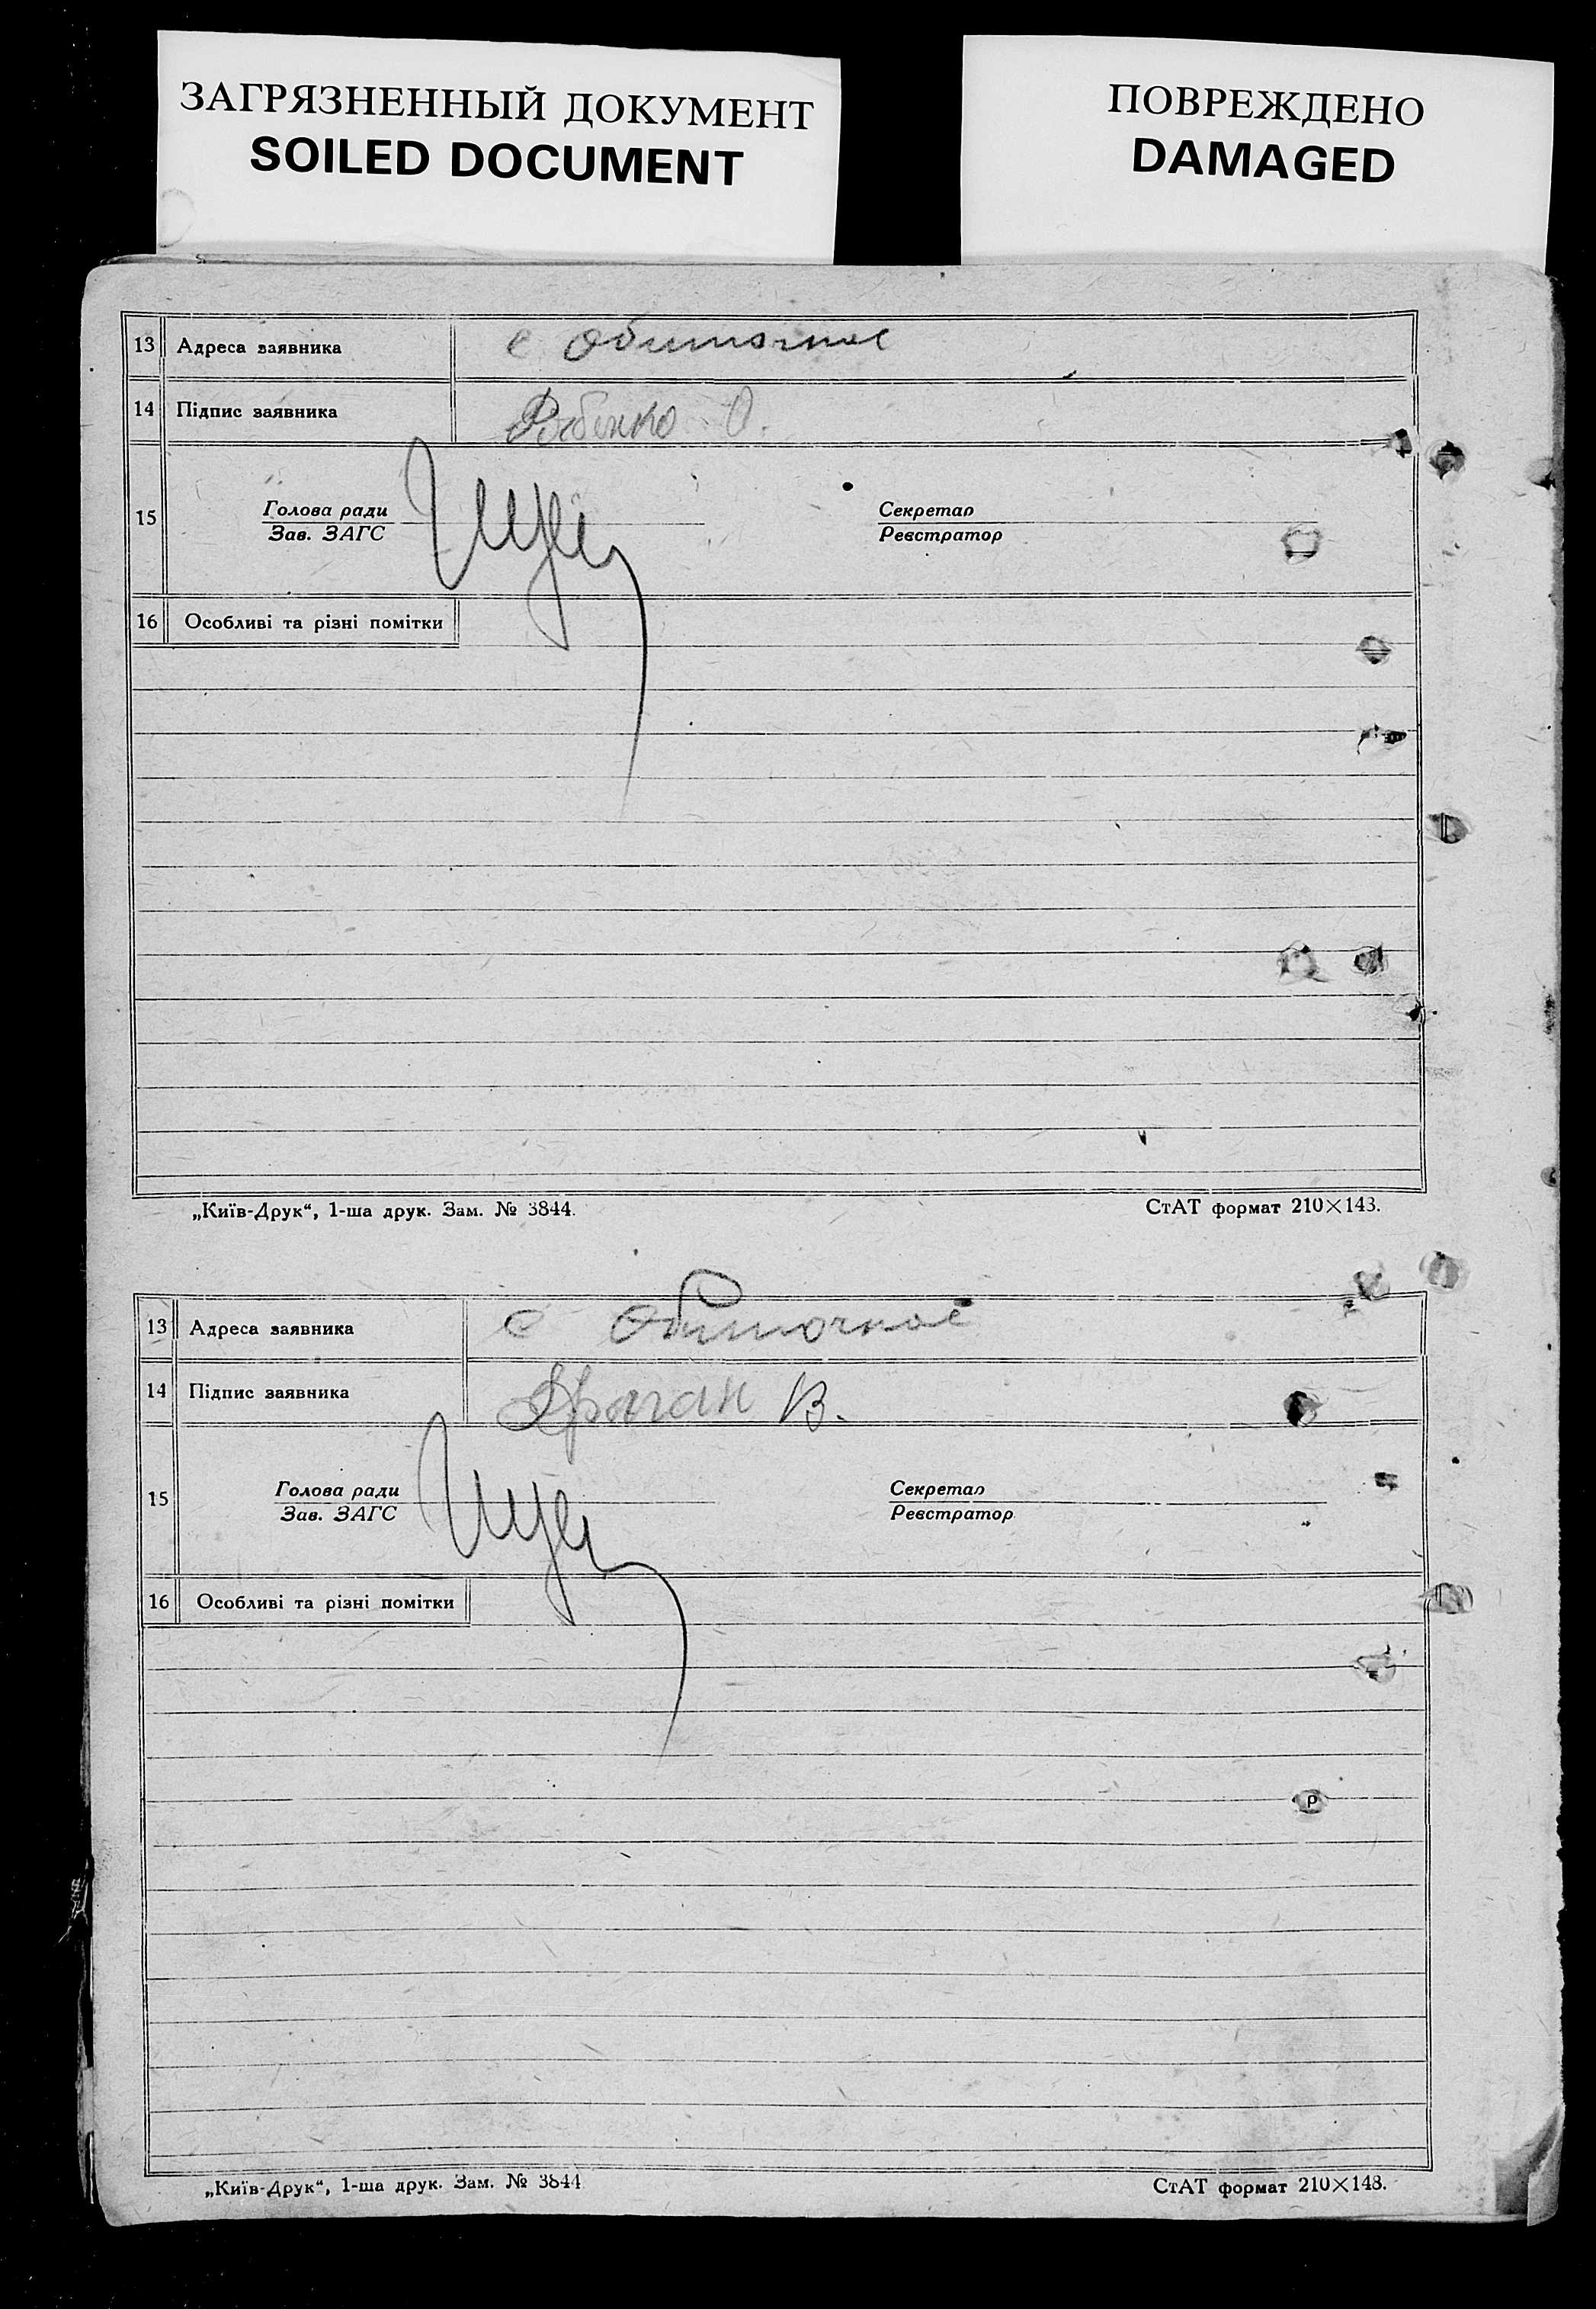 ЗАГРЯЗНЕННЫЙ ДОКУМЕНТ
SOILED DOCUMENT
ПОВРЕЖДЕНО
DAMAGED
13 Адреса заявника с Обиточное
14 Підпис заявника Рябенко О.
15 Голова ради Секретар
Зав. ЗАГС Реєстратор
16 Особливі та різні помітки
„Київ-Друк“, 1-ша друк. Зам. № 3844. СтАТ формат 210×143.
13 Адреса заявника с Обиточное
14 Підпис заявника Драган В.
15 Голова ради Секретар
Зав. ЗАГС Реєстратор
16 Особливі та різні помітки
„Київ-Друк“, 1-ша друк. Зам. № 3844 СтАТ формат 210×148.